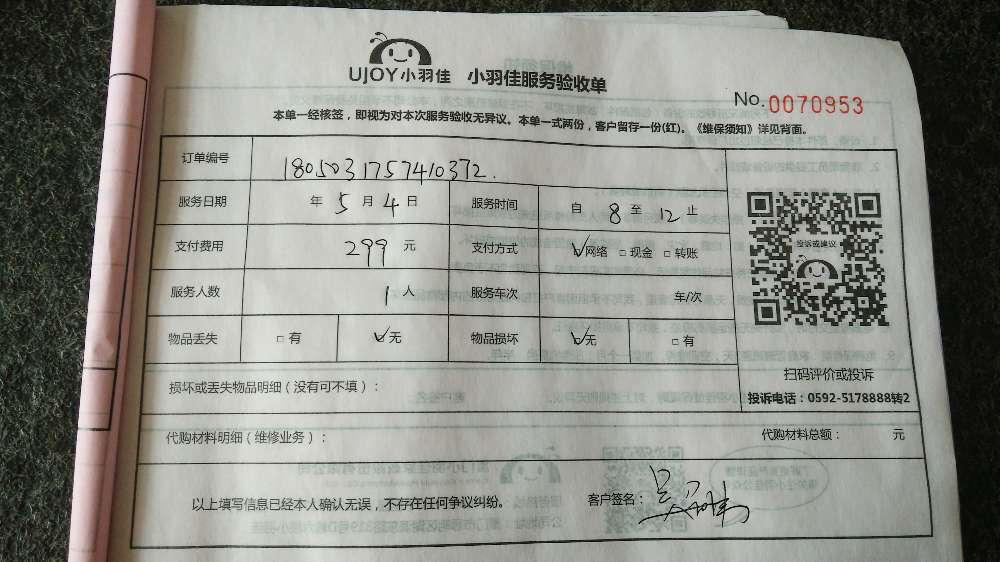 UJOY小羽佳 小羽佳服务验收单
No. 0070953
本单一经核签，即视为对本次服务验收无异议。本单一式两份，客户留存一份(红)。《维保须知》详见背面。
订单编号 1805031757410372.
服务日期 年 5 月 4 日 服务时间 自 8 至 12 止
支付费用 299 元 支付方式 ☑网络 □现金 □转账
投诉或建议
服务人数 1 人 服务车次 车/次
物品丢失 □有 ☑无 物品损坏 ☑无 □有
扫码评价或投诉
损坏或丢失物品明细（没有可不填）：
投诉电话：0592-5178888转2
代购材料明细（维修业务）： 代购材料总额： 元
以上填写信息已经本人确认无误，不存在任何争议纠纷。 客户签名：吴